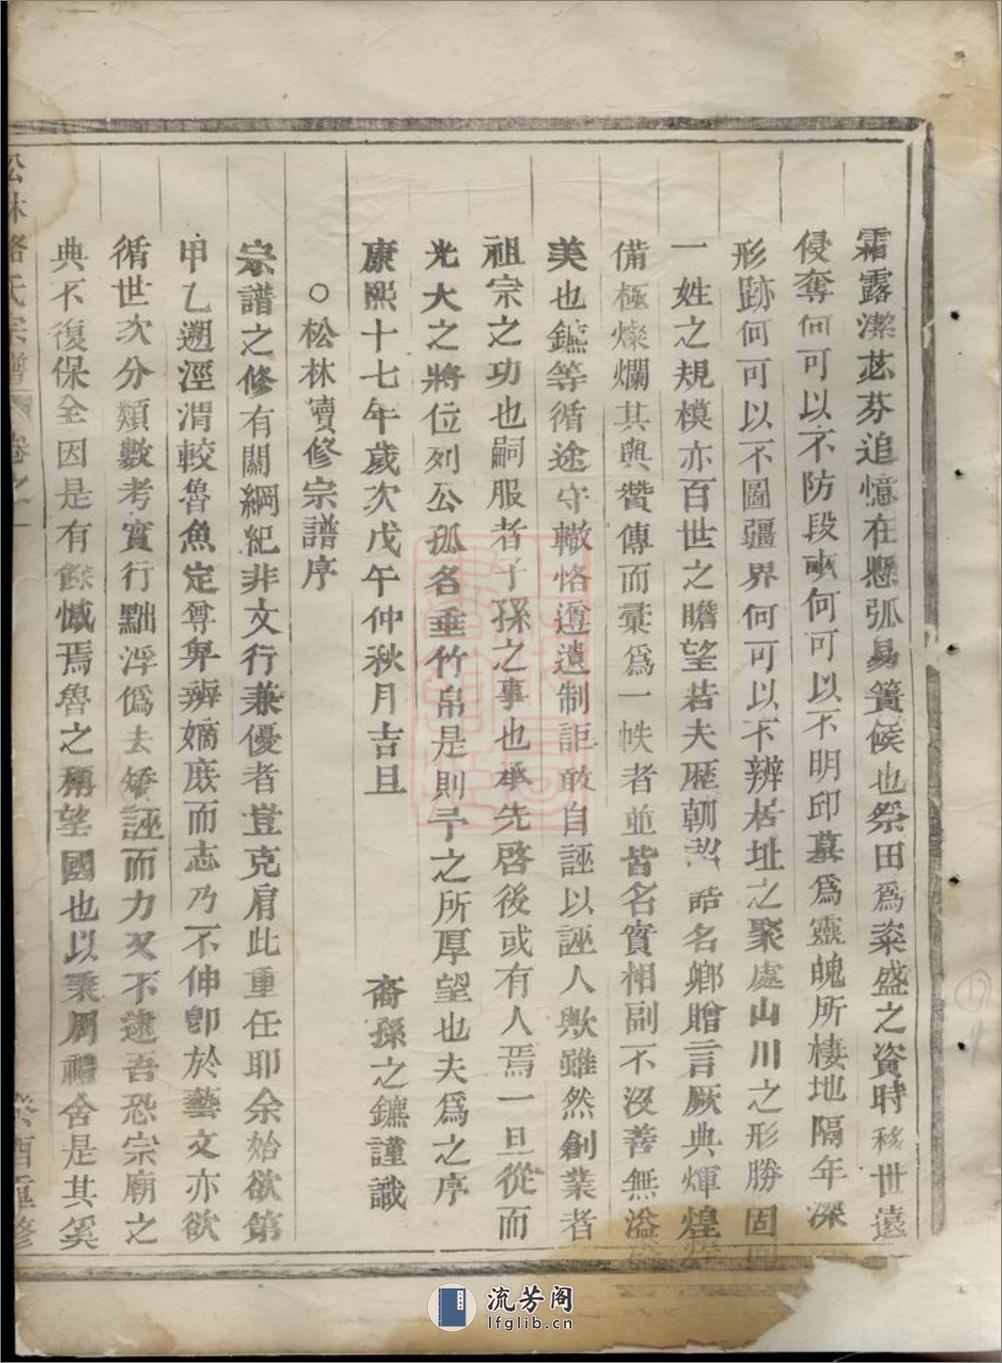 霜露潔苾芬追憶在懸弧易簀候也祭田爲粢盛之資時移世遠
侵奪何可以不防段畝何可以不明邱墓爲靈魄所棲地隔年深
形跡何可以不圖疆界何可以不辨居址之聚處山川之形勝固
一姓之規模亦百世之瞻望若夫歷朝詔誥名鄉贈言厥典煇煌
備極燦爛其與贊傳而彙爲一帙者並皆名實相副不沒善無溢
美也鑣等循途守轍恪遵遺制詎敢自誣以誣人歟雖然創業者
祖宗之功也嗣服者子孫之事也承先啓後或有人焉一旦從而
光大之將位列公孤名垂竹帛是則予之所厚望也夫爲之序
康熙十七年歲次戊午仲秋月吉旦 裔孫之鑣謹識
○松林竇修宗譜序
宗譜之修有關綱紀非文行兼優者豈克肩此重任耶余始欲第
甲乙遡涇渭較魯魚定尊卑辨嫡庶而志乃不伸卽於藝文亦欲
循世次分類數考實行黜浮僞去矯誣而力又不逮吾恐宗廟之
典不復保全因是有餘憾焉魯之稱望國也以秉周禮舍是其奚
松林駱氏宗譜 卷之一 癸酉重修
流芳阁
lfglib.cn